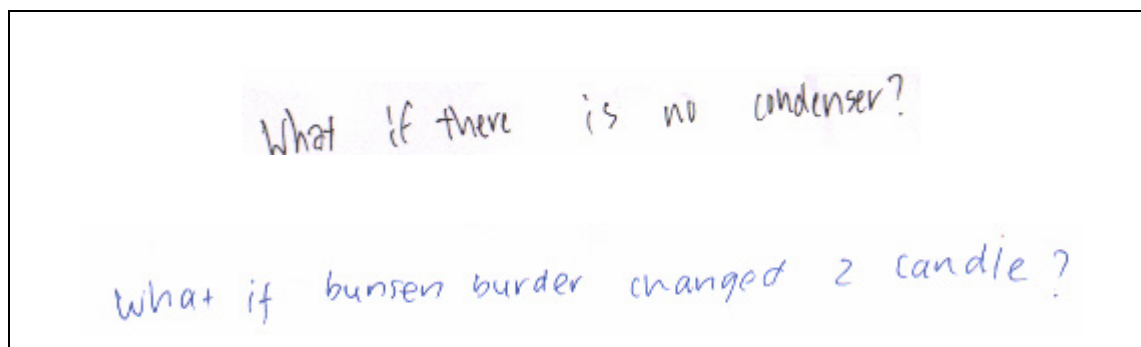 What if there is no condenser?
What if bunsen burder changed 2 candle?